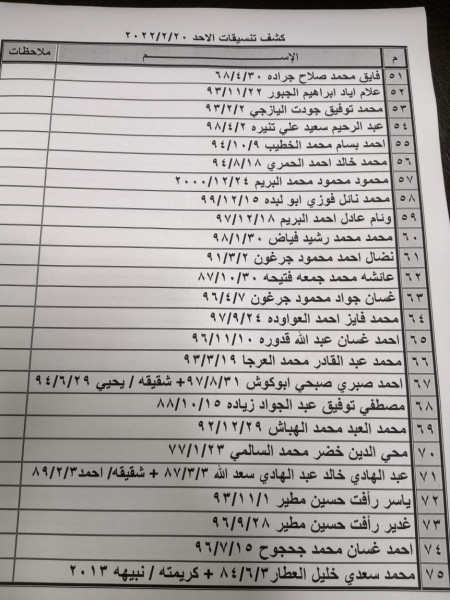 كشف تنسيقات الاحد ٢٠٢٢/٢/٢٠
م الإســـــم ملاحظات
٥١ فايق محمد صلاح جراده ٦٨/٤/٣٠
٥٢ علام اياد ابراهيم الجبور ٩٣/١١/٢٢
٥٣ محمد توفيق جودت اليازجي ٩٣/٢/٢
٥٤ عبد الرحيم سعيد علي تنيره ٩٨/٤/٢
٥٥ احمد بسام محمد الخطيب ٩٤/١٠/٩
٥٦ محمد خالد احمد الحمري ٩٤/٨/١٨
٥٧ محمود محمود محمد البريم ٢٠٠٠/١٢/٢٤
٥٨ محمد نائل فوزي ابو لبده ٩٩/١٢/١٥
٥٩ ونام عادل احمد البريم ٩٧/١٢/١٨
٦٠ محمد محمد رشيد فياض ٩٨/١/٣٠
٦١ نضال احمد محمود جرغون ٩١/٣/٢
٦٢ عائشه محمد جمعه فتيحه ٨٧/١٠/٣٠
٦٣ غسان جواد محمود جرغون ٩٦/٤/٧
٦٤ محمد فايز احمد العواوده ٩٧/٩/٢٤
٦٥ احمد غسان عبد الله قدوره ٩٦/١١/١٠
٦٦ محمد عبد القادر محمد العرجا ٩٣/٣/١٩
٦٧ احمد صبري صبحي ابوكوش ٩٧/٨/٣١+ شقيقه / يحيي ٩٤/٦/٢٩
٦٨ مصطفي توفيق عبد الجواد زياده ٨٨/١٠/١٥
٦٩ محمد العبد محمد الهباش ٩٢/١٢/٢٩
٧٠ محي الدين خضر محمد السالمي ٧٧/١/٢٣
٧١ عبد الهادي خالد عبد الهادي سعد الله ٨٧/٣/٣ + شقيقه/ احمد٨٩/٢/٣
٧٢ ياسر رأفت حسين مطير ٩٣/١١/١
٧٣ غدير رأفت حسين مطير ٩٦/٩/٢٨
٧٤ احمد غسان محمد جحجوح ٩٦/٧/١٥
٧٥ محمد سعدي خليل العطار٨٤/٦/٣ + كريمته / نبيهه ٢٠١٣